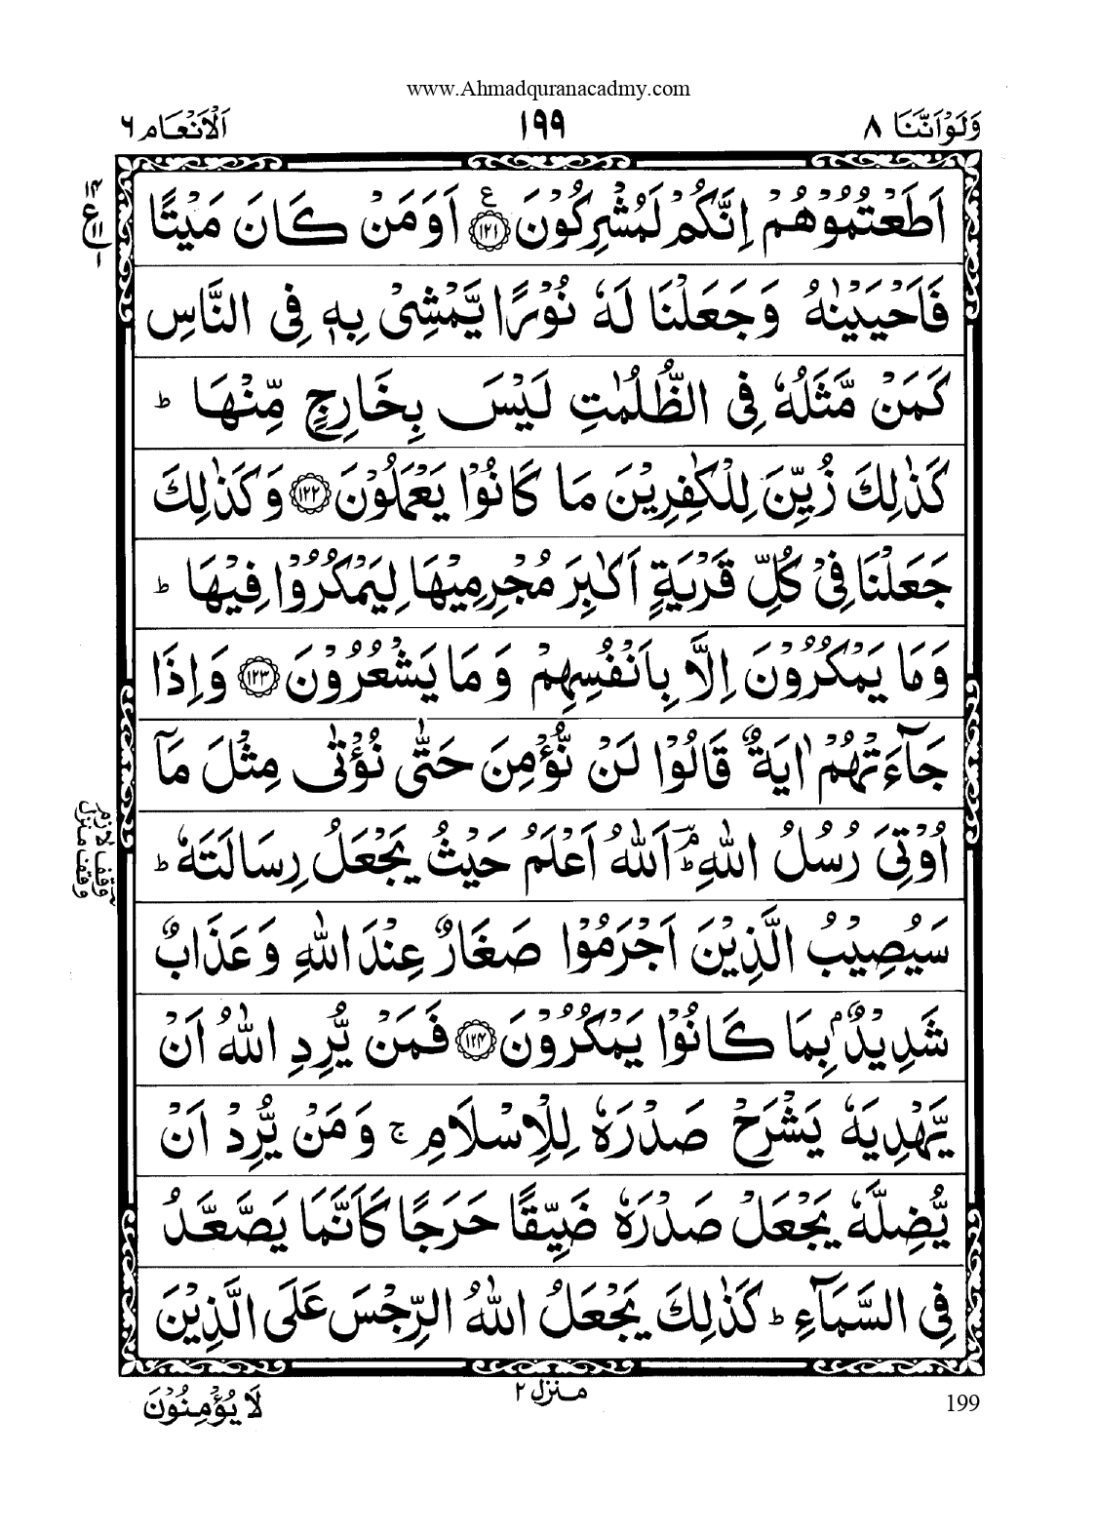 www.Ahmadquranacadmy.com
وَلَوْاَنَّنَا ٨ ١٩٩ اَلْاَنْعَام ٦
اَطَعْتُمُوْهُمْ اِنَّكُمْ لَمُشْرِكُوْنَ ﴿١٢١﴾ ع اَوَمَنْ كَانَ مَيْتًا
١٤
ع
١١
١
فَاَحْيَيْنٰهُ وَجَعَلْنَا لَهٗ نُوْرًا يَّمْشِىْ بِهٖ فِى النَّاسِ
كَمَنْ مَّثَلُهٗ فِى الظُّلُمٰتِ لَيْسَ بِخَارِجٍ مِّنْهَا ؕ
كَذٰلِكَ زُيِّنَ لِلْكٰفِرِيْنَ مَا كَانُوْا يَعْمَلُوْنَ ﴿١٢٢﴾ وَكَذٰلِكَ
جَعَلْنَا فِىْ كُلِّ قَرْيَةٍ اَكٰبِرَ مُجْرِمِيْهَا لِيَمْكُرُوْا فِيْهَا ؕ
وَمَا يَمْكُرُوْنَ اِلَّا بِاَنْفُسِهِمْ وَمَا يَشْعُرُوْنَ ﴿١٢٣﴾ وَاِذَا
جَآءَتْهُمْ اٰيَةٌ قَالُوْا لَنْ نُّؤْمِنَ حَتّٰى نُؤْتٰى مِثْلَ مَآ
اُوْتِىَ رُسُلُ اللّٰهِ ؔۘ اَللّٰهُ اَعْلَمُ حَيْثُ يَجْعَلُ رِسَالَتَهٗ ؕ
وقف لازم
وقف منزل
سَيُصِيْبُ الَّذِيْنَ اَجْرَمُوْا صَغَارٌ عِنْدَ اللّٰهِ وَعَذَابٌ
شَدِيْدٌۢ بِمَا كَانُوْا يَمْكُرُوْنَ ﴿١٢٤﴾ فَمَنْ يُّرِدِ اللّٰهُ اَنْ
يَّهْدِيَهٗ يَشْرَحْ صَدْرَهٗ لِلْاِسْلَامِ ۚ وَمَنْ يُّرِدْ اَنْ
يُّضِلَّهٗ يَجْعَلْ صَدْرَهٗ ضَيِّقًا حَرَجًا كَاَنَّمَا يَصَّعَّدُ
فِى السَّمَآءِ ؕ كَذٰلِكَ يَجْعَلُ اللّٰهُ الرِّجْسَ عَلَى الَّذِيْنَ
منزل ٢
لَا يُؤْمِنُوْنَ
199